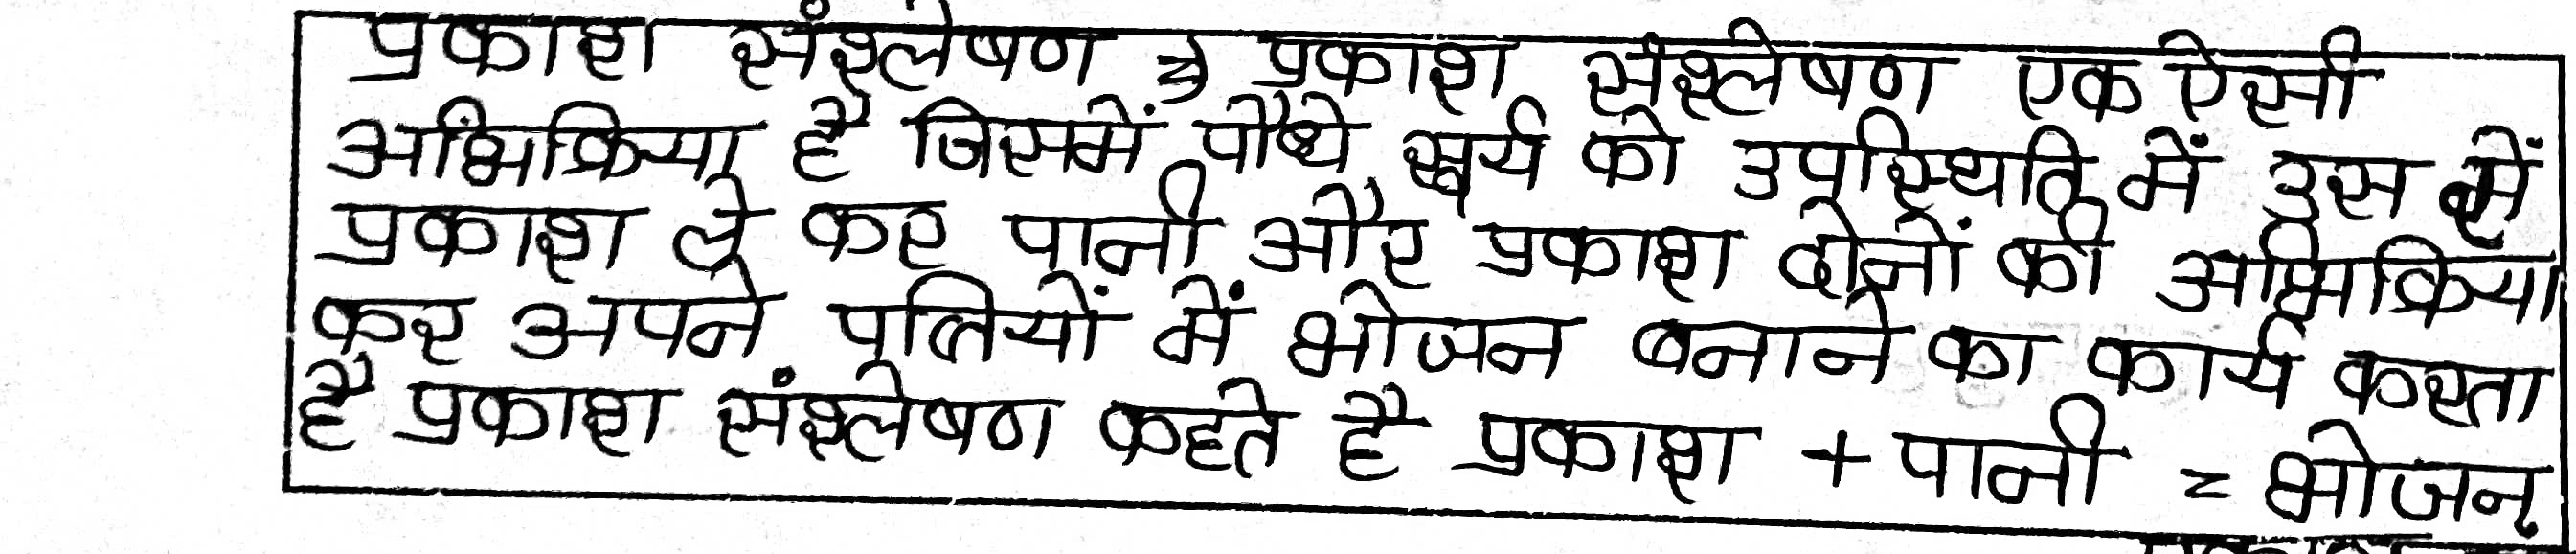 प्रकाश संश्लेषण → प्रकाश संश्लेषण एक ऐसी
अभिक्रिया है जिसमें पौधे सूर्य की उपस्थिति में उस में
प्रकाश ले कर पानी और प्रकाश दोनों की अभिक्रिया
कर अपने पत्तियों में भोजन बनाने का कार्य करता
है प्रकाश संश्लेषण कहते है प्रकाश + पानी = भोजन